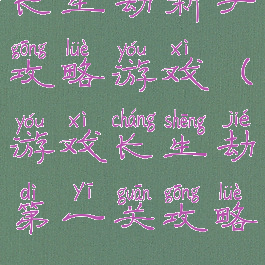 长生劫新手
gōng lüè yóu xì
攻略游戏（
yóu xì cháng shēng jié
游戏长生劫
dì yī guān gōng lüè
第一关攻略